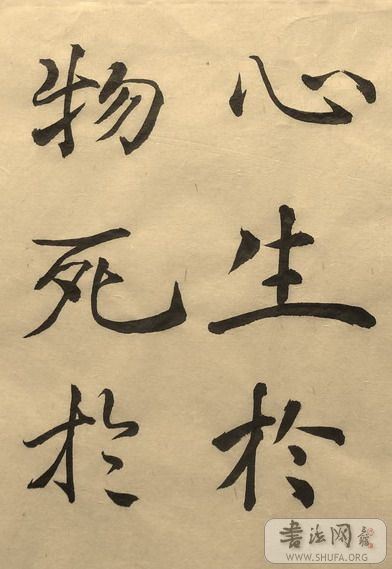 心生於
物死於
书法网
WWW.SHUFA.ORG